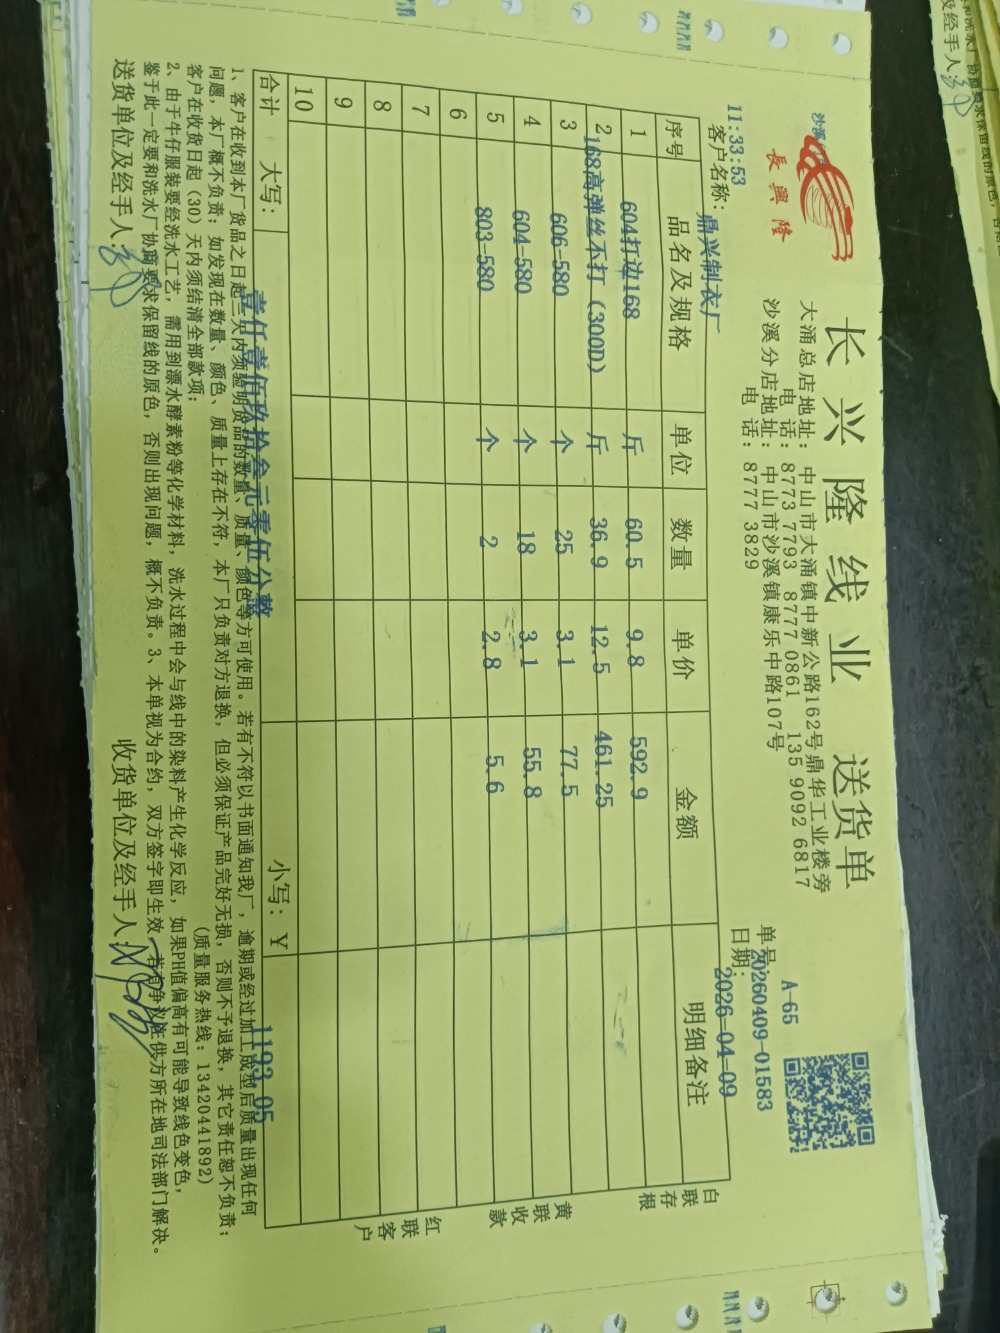 長興隆
长兴隆线业 送货单
大涌总店地址：中山市大涌镇中新公路162号鼎华工业楼旁
电话：8773 7793 8777 0861 135 9092 6817
沙溪分店地址：中山市沙溪镇康乐中路107号
电话：8777 3829
A-65
单号：20260409-01583
日期：2026-04-09
11:33:53
客户名称：鼎兴制衣厂
序号 品名及规格 单位 数量 单价 金额 明细备注
1 604打边168 斤 60.5 9.8 592.9
2 168高弹丝不打（300D） 斤 36.9 12.5 461.25
3 606-580 个 25 3.1 77.5
4 604-580 个 18 3.1 55.8
5 803-580 个 2 2.8 5.6
6
7
8
9
10
合计 大写：壹仟壹佰玖拾叁元零伍分整 小写：¥ 1193.05
1、客户在收到本厂货品之日起三天内须验明货品的数量、质量、颜色等方可使用。若有不符以书面通知我厂，逾期或经过加工成型后质量出现任何
问题，本厂概不负责；如发现在数量、颜色、质量上存在不符，本厂只负责对方退换，但必须保证产品完好无损，否则不予退换，其它责任恕不负责；
客户在收货日起（30）天内须结清全部款项； （质量服务热线：13420441892）
2、由于牛仔服装要经洗水工艺，需用到漂水酵素粉等化学材料，洗水过程中会与线中的染料产生化学反应，如果PH值偏高有可能导致线色变色，
鉴于此一定要和洗水厂协商要求保留线的原色，否则出现问题，概不负责。3、本单视为合约，双方签字即生效，若有争议在供方所在地司法部门解决。
送货单位及经手人： 收货单位及经手人：
白联存根
黄联收款
红联客户
及经手人